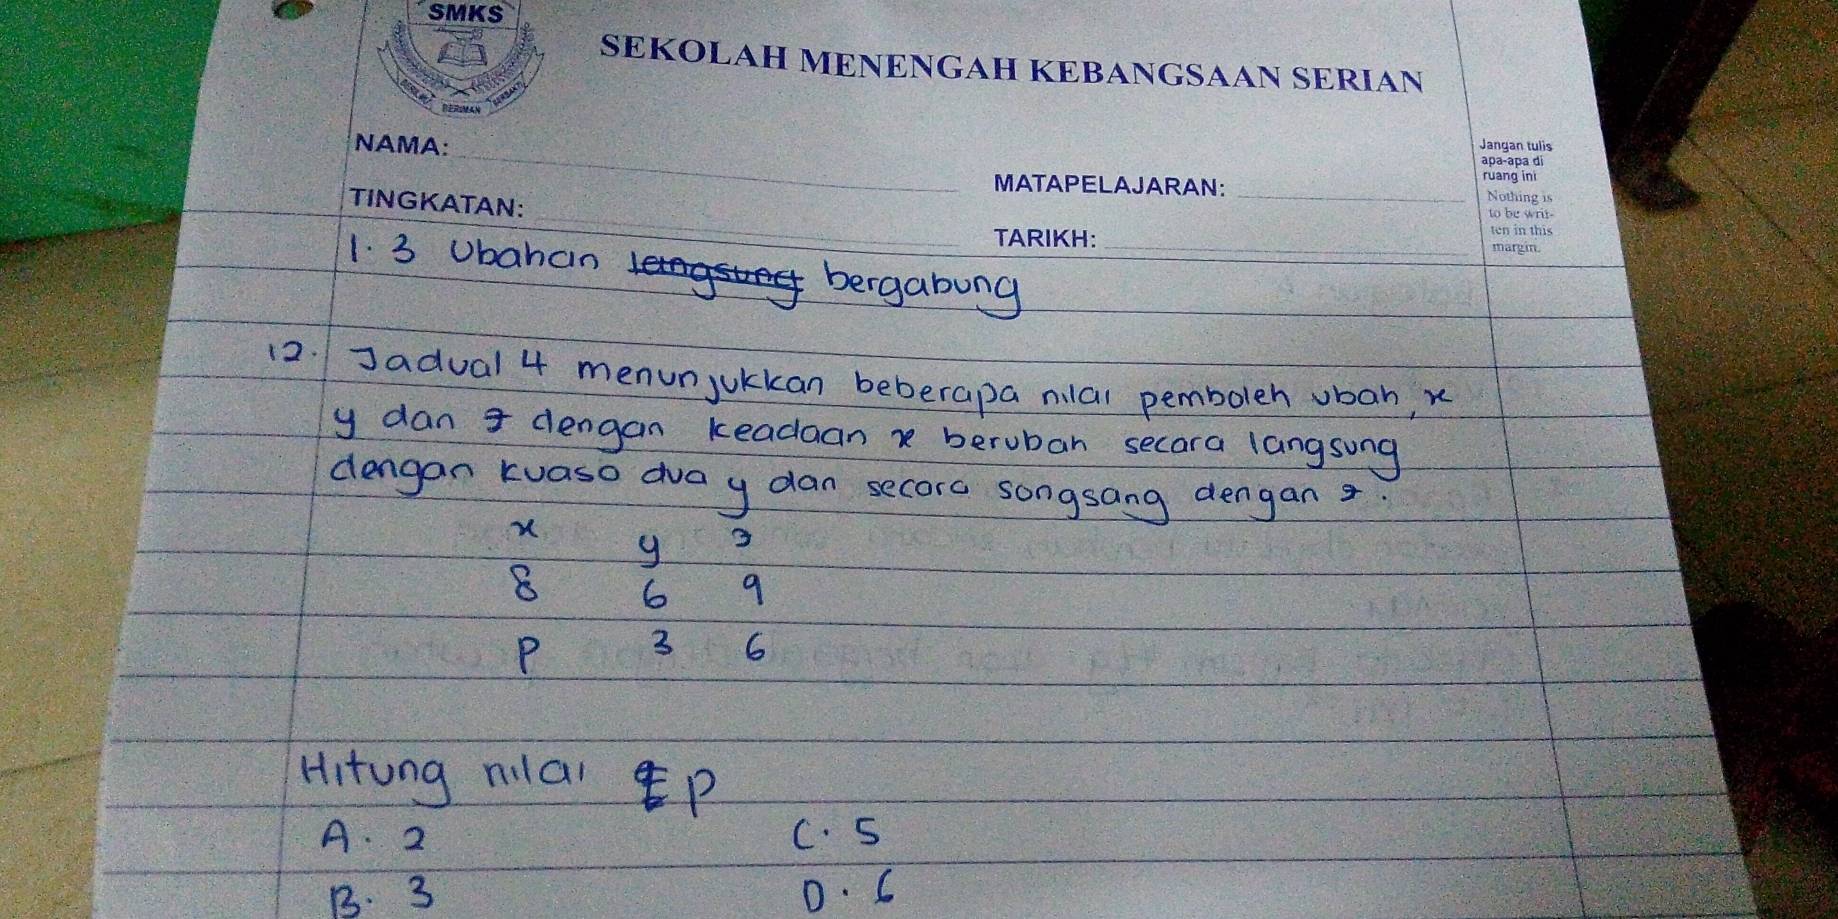 SMKS
BERILMU BERIMAN BERBAKTI
SEKOLAH MENENGAH KEBANGSAAN SERIAN
NAMA:
MATAPELAJARAN:
TINGKATAN:
TARIKH:
Jangan tulis
apa-apa di
ruang ini
Nothing is
to be writ-
ten in this
margin.
1.3 Ubahan langsung bergabung
12. Jadual 4 menunjukkan beberapa nilai pemboleh ubah, x
y dan z dengan keadaan x berubah secara langsung
dengan kuasa dua y dan secara songsang dengan z.
x y z
8 6 9
P 3 6
Hitung nilai P
A. 2 C. 5
B. 3 D. 6